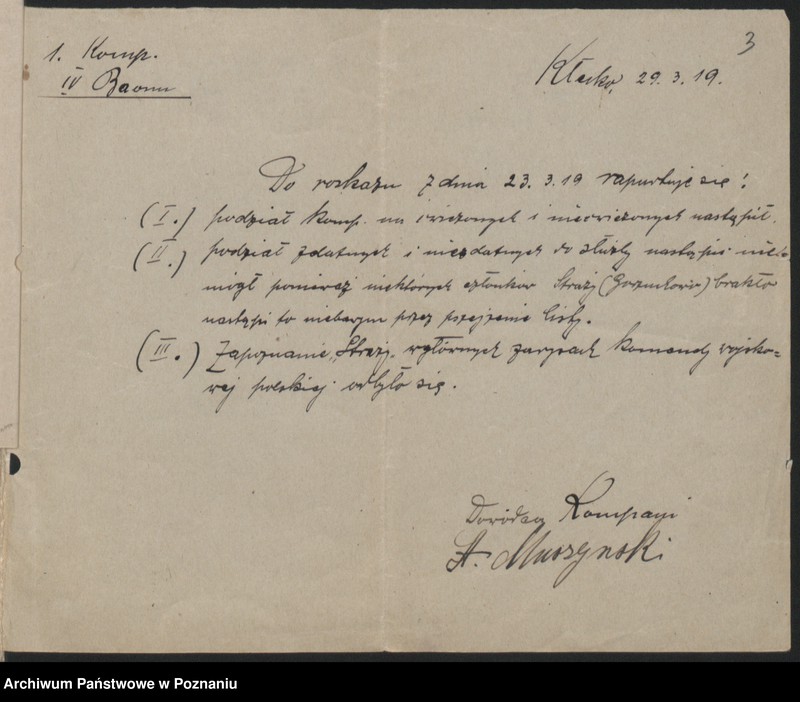 3
1. Komp.
IV Baonu
Kłecko, 29. 3. 19.
Do roskazu z dnia 23. 3. 19 raportuje się!
(I.) podział komp. na ćwiczonych i niećwiczonych nastąpił.
(II.) podział zdatnych i niezdatnych do służby nastąpić nie
mógł ponieważ niektórych członków Straży brakło
nastąpi to niebawym przez przejrzenie listy.
(III.) Zapoznanie Straży w głównych zarysach komendy wojsko=
wej polskiej odbyło się.
Dowódca Kompani
St. Muszynski
Archiwum Państwowe w Poznaniu